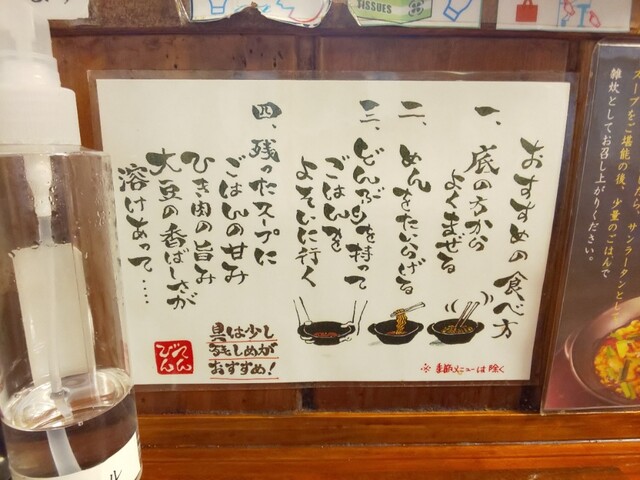 おすすめの食べ方
一、底の方から
よくまぜる
二、めんをたいらげる
三、どんぶりを持って
ごはんを
よそいに行く
四、残ったスープに
ごはんの甘み
ひき肉の旨み
大豆の香ばしさが
溶けあって‥‥
具は少し
残しめが
おすすめ!
※季節メニューは除く
てん
びん
TISSUES
スープをご堪能の後、少量のごはんで
雑炊としてお召し上がりください。